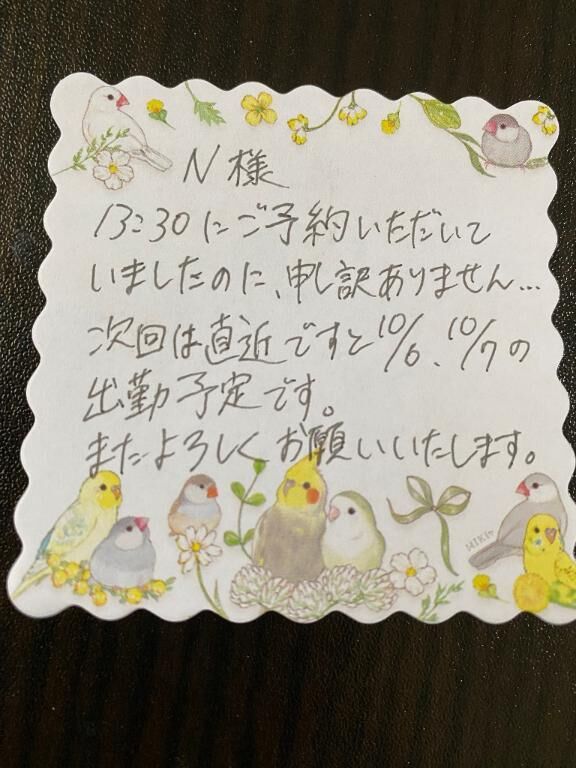 N様
13:30にご予約いただいて
いましたのに、申し訳ありません…
次回は直近ですと10/6、10/7の
出勤予定です。
またよろしくお願いいたします。
MIKI